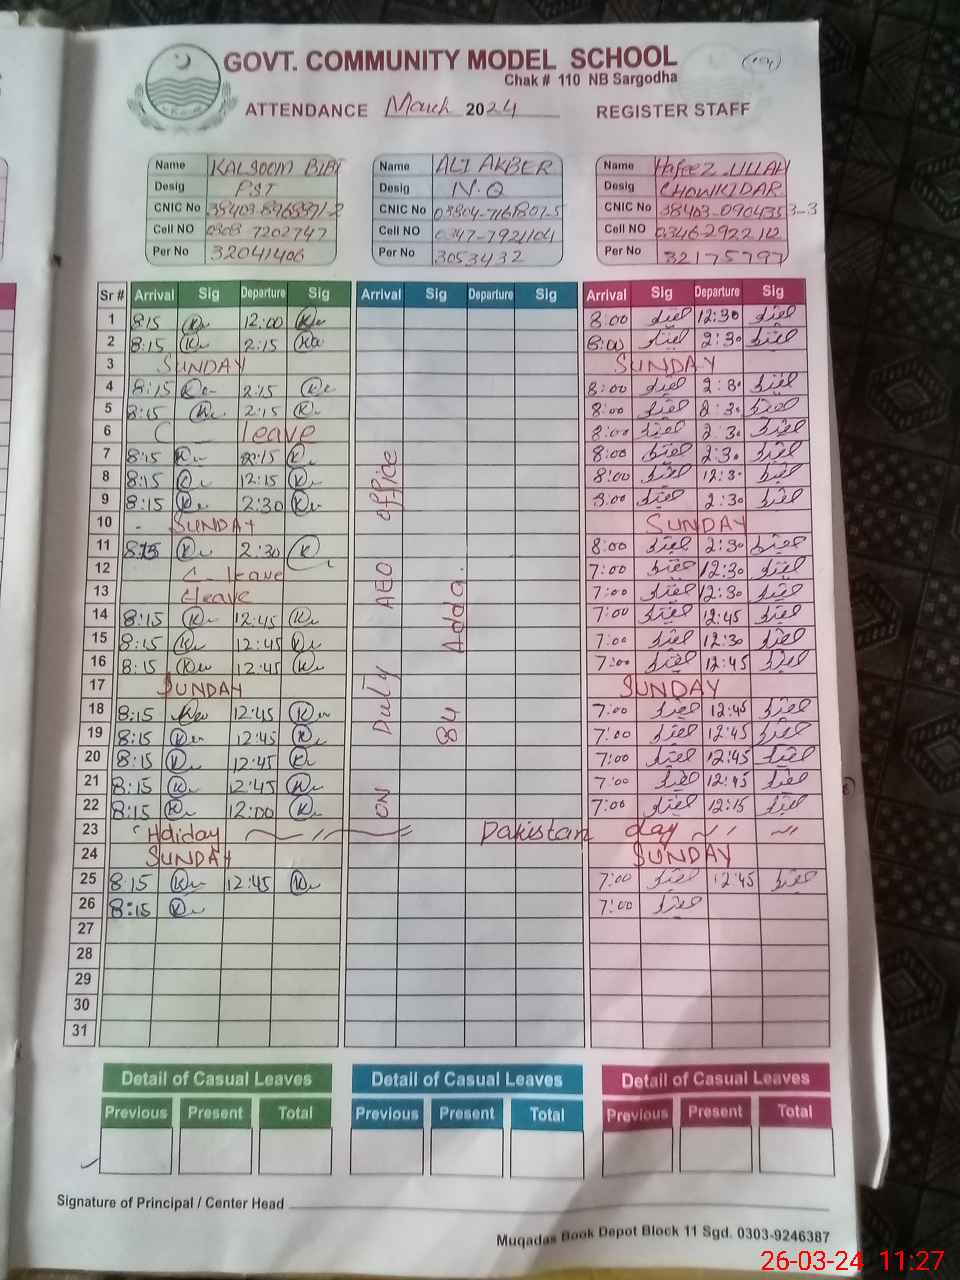 GOVT. COMMUNITY MODEL SCHOOL
Chak # 110 NB Sargodha
ATTENDANCE March 2024 REGISTER STAFF
Name KALSOOM BIBI Name ALI AKBER Name Hafeez ULLAH
Desig PST Desig N.Q Desig CHOWKIDAR
CNIC No CNIC No CNIC No 38403-0904353-3
Cell NO 0308-7202747 Cell NO 0347-7921104 Cell NO 0346-2922112
Per No 32041406 Per No 3053432 Per No 32175797
Sr # Arrival Sig Departure Sig Arrival Sig Departure Sig Arrival Sig Departure Sig
1 8:15 12:00 8:00 12:30
2 8:15 2:15 8:00 2:30
3 SUNDAY SUNDAY
4 8:15 2:15 8:00 2:30
5 8:15 2:15 8:00 2:30
6 C leave 8:00 2:30
7 8:15 2:15 8:00 2:30
8 8:15 12:15 8:00 12:30
9 8:15 2:30 8:00 2:30
10 SUNDAY SUNDAY
11 8:15 2:30 8:00 2:30
12 C leave 7:00 12:30
13 leave 7:00 12:30
14 8:15 12:45 7:00 12:45
15 8:15 12:45 7:00 12:30
16 8:15 12:45 7:00 12:45
17 SUNDAY SUNDAY
18 8:15 12:45 7:00 12:45
19 8:15 12:45 7:00 12:45
20 8:15 12:45 7:00 12:45
21 8:15 12:45 7:00 12:45
22 8:15 12:00 7:00 12:15
ON Duty AEO office
84 Adda.
23 Holiday Pakistan day
24 SUNDAY SUNDAY
25 8:15 12:45 7:00 12:45
26 8:15 7:00
27
28
29
30
31
Detail of Casual Leaves Detail of Casual Leaves Detail of Casual Leaves
Previous Present Total Previous Present Total Previous Present Total
Signature of Principal / Center Head
Muqadas Book Depot Block 11 Sgd. 0303-9246387
26-03-24 11:27